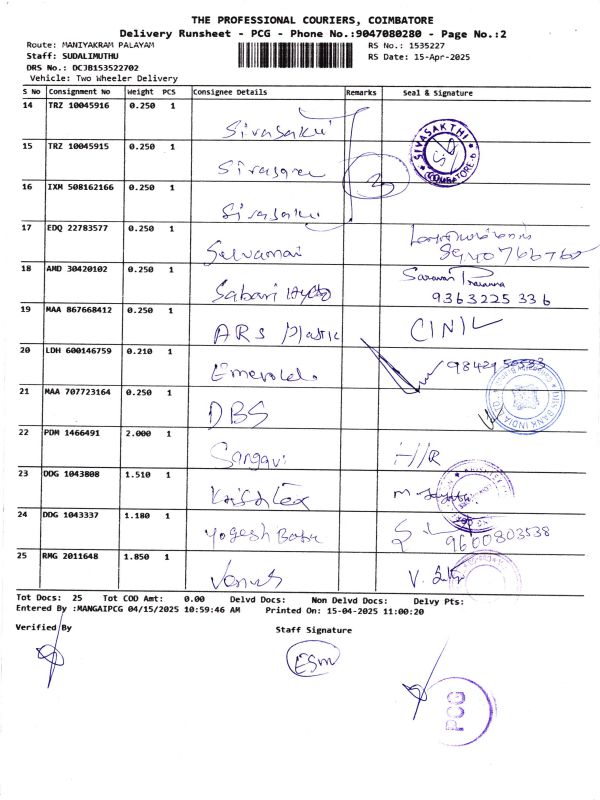 THE PROFESSIONAL COURIERS, COIMBATORE
Delivery Runsheet - PCG - Phone No.:9047080280 - Page No.:2
Route: MANIYAKRAM PALAYAM RS No.: 1535227
Staff: SUDALIMUTHU RS Date: 15-Apr-2025
DRS No.: DCJB153522702
Vehicle: Two Wheeler Delivery
S No Consignment No Weight PCS Consignee Details Remarks Seal & Signature
14 TRZ 10045916 0.250 1 Sivasakti SIVASAKTHI COIMBATORE
15 TRZ 10045915 0.250 1
16 IXM 508162166 0.250 1
17 EDQ 22783577 0.250 1 Selvamani
18 AMD 30420102 0.250 1 Sabari Saravan 9363225336
19 MAA 867668412 0.250 1 ARS Plastic
20 LDH 600146759 0.210 1 Emerald
21 MAA 707723164 0.250 1 DBS BANK INDIA
22 PDM 1466491 2.000 1 Sangavi
23 DDG 1043808 1.510 1
24 DDG 1043337 1.180 1 Yogesh 9600803538
25 RMG 2011648 1.850 1 Venus V.
Tot Docs: 25 Tot COD Amt: 0.00 Delvd Docs: Non Delvd Docs: Delvy Pts:
Entered By :MANGAIPCG 04/15/2025 10:59:46 AM Printed On: 15-04-2025 11:00:20
Verified By Staff Signature
ESM
PCG